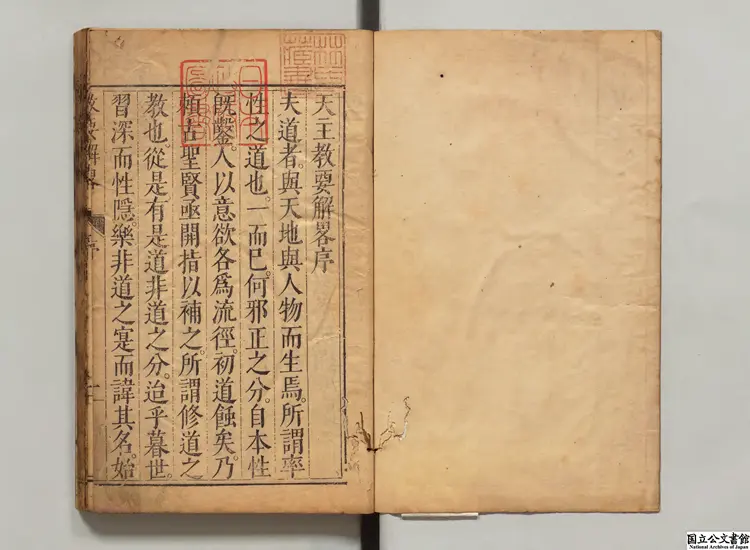 天王教要解畧序
夫道者。與天地與人物而生焉。所謂率
性之道也。一而已。何邪正之分。自本性
旣鑿。人以意欲各爲流徑。初道蝕矣。乃
賴古聖賢亟開指以補之。所謂修道之
教也。從是有是道非道之分。迨乎暮世。
習深而性隱。樂非道之寔而諱其名。始
教要解畧
序
一
国立公文書館
National Archives of Japan